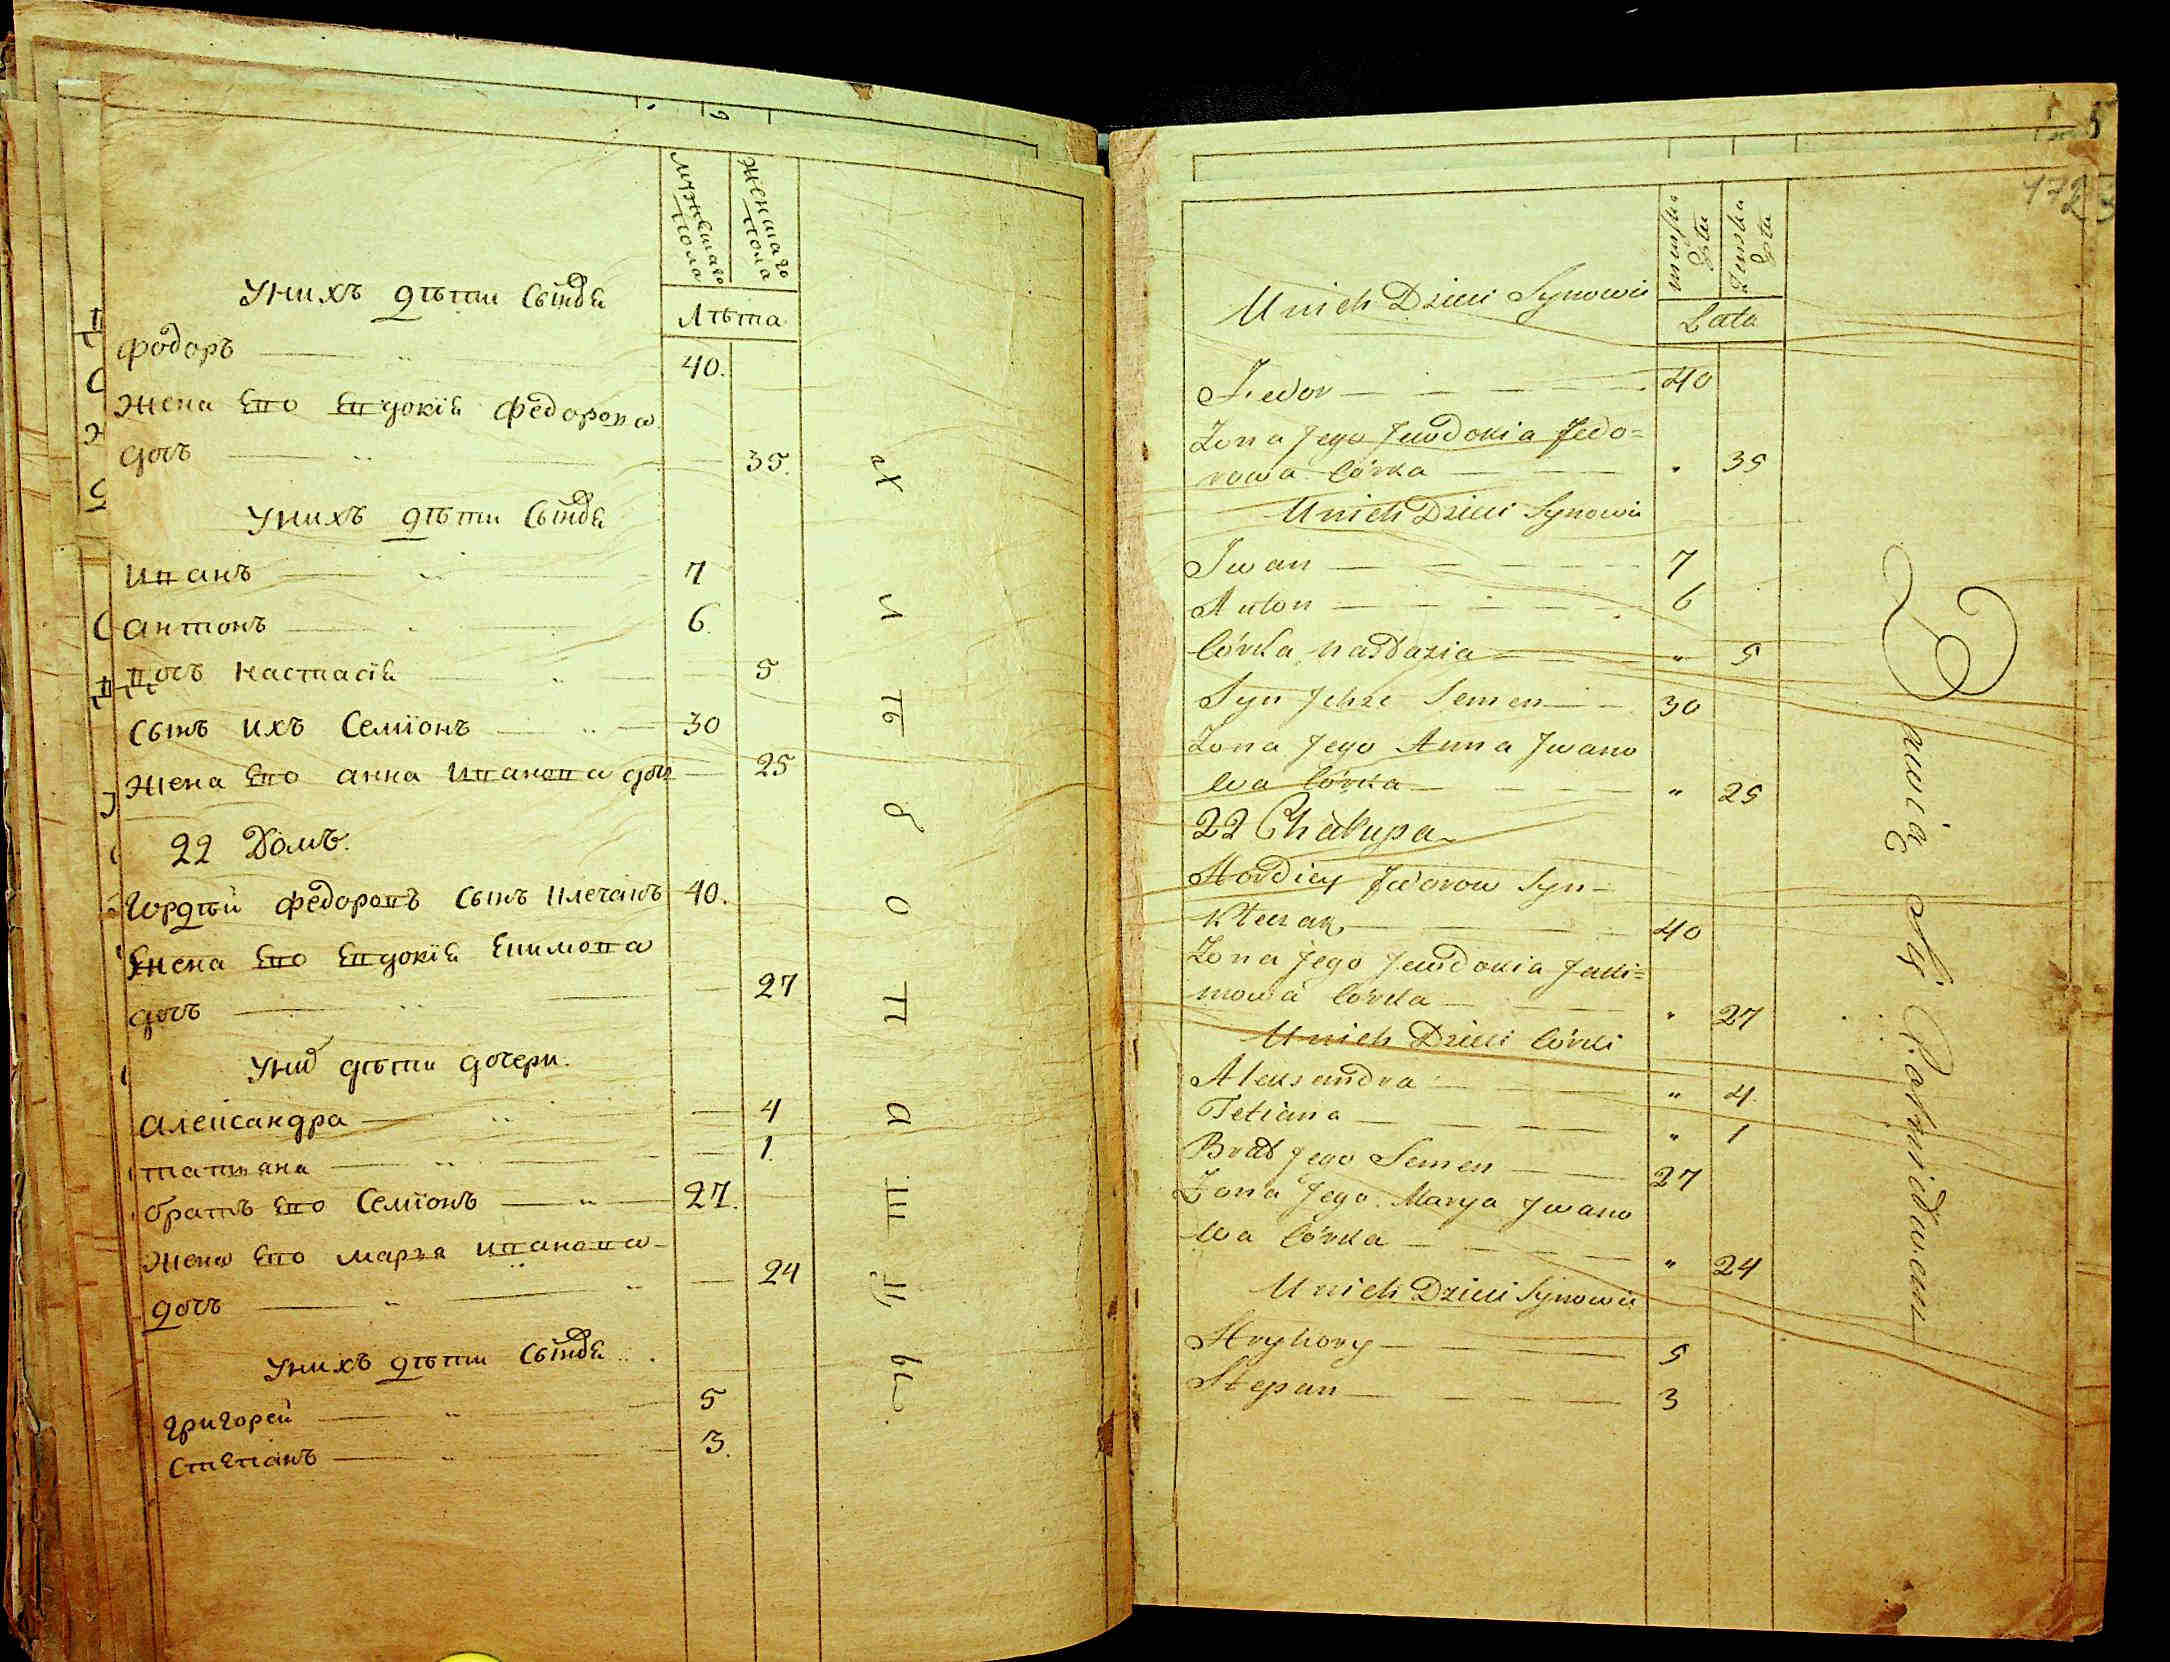 мужескаго пола
женскаго пола
Лѣта
У нихъ дѣти сыновя
Фодоръ 40.
жена Его Евдокія Федорова
дочъ 35.
У нихъ дѣти сыновя
Иванъ 7
антонъ 6.
дочъ Настасія 5
сынъ ихъ Семіонъ 30
жена Его анна Иванова дочъ 25
22 Домъ.
Гордѣй Федоровъ сынъ Клечакъ 40.
Жена Его Евдокія Екимова
дочъ 27
У них дѣти дочери.
александра 4
татьяна 1.
братъ Его Семіонъ 27.
жена Его марья иванова
дочъ 24
У нихъ дѣти сыновя
григорей 5
Степанъ 3.
хлѣбопашцы
5
Męska
Żeńska
Lata
U nich Dzieci Synowie
Fedor 40
Żona Jego Jewdokia Fedo=
rowa Córka " 35
U nich Dzieci Synowie
Jwan 7
Anton 6
Córka Nastazia " 5
Syn Jchże Semen 30
Żona Jego Anna Jwano
wa Córka " 25
22 Chałupa
Hordiey Fedorow Syn
Kleczak 40
Żona Jego Jewdokia Jeki=
mowa Córka " 27
U nich Dzieci Córki
Aleksandra " 4
Tetiana " 1
Brat Jego Semen 27
Żona Jego Marya Jwano
wa Córka " 24
U nich Dzieci Synowie
Hryhory 5
Stepan 3
Bawią się Rolnictwem